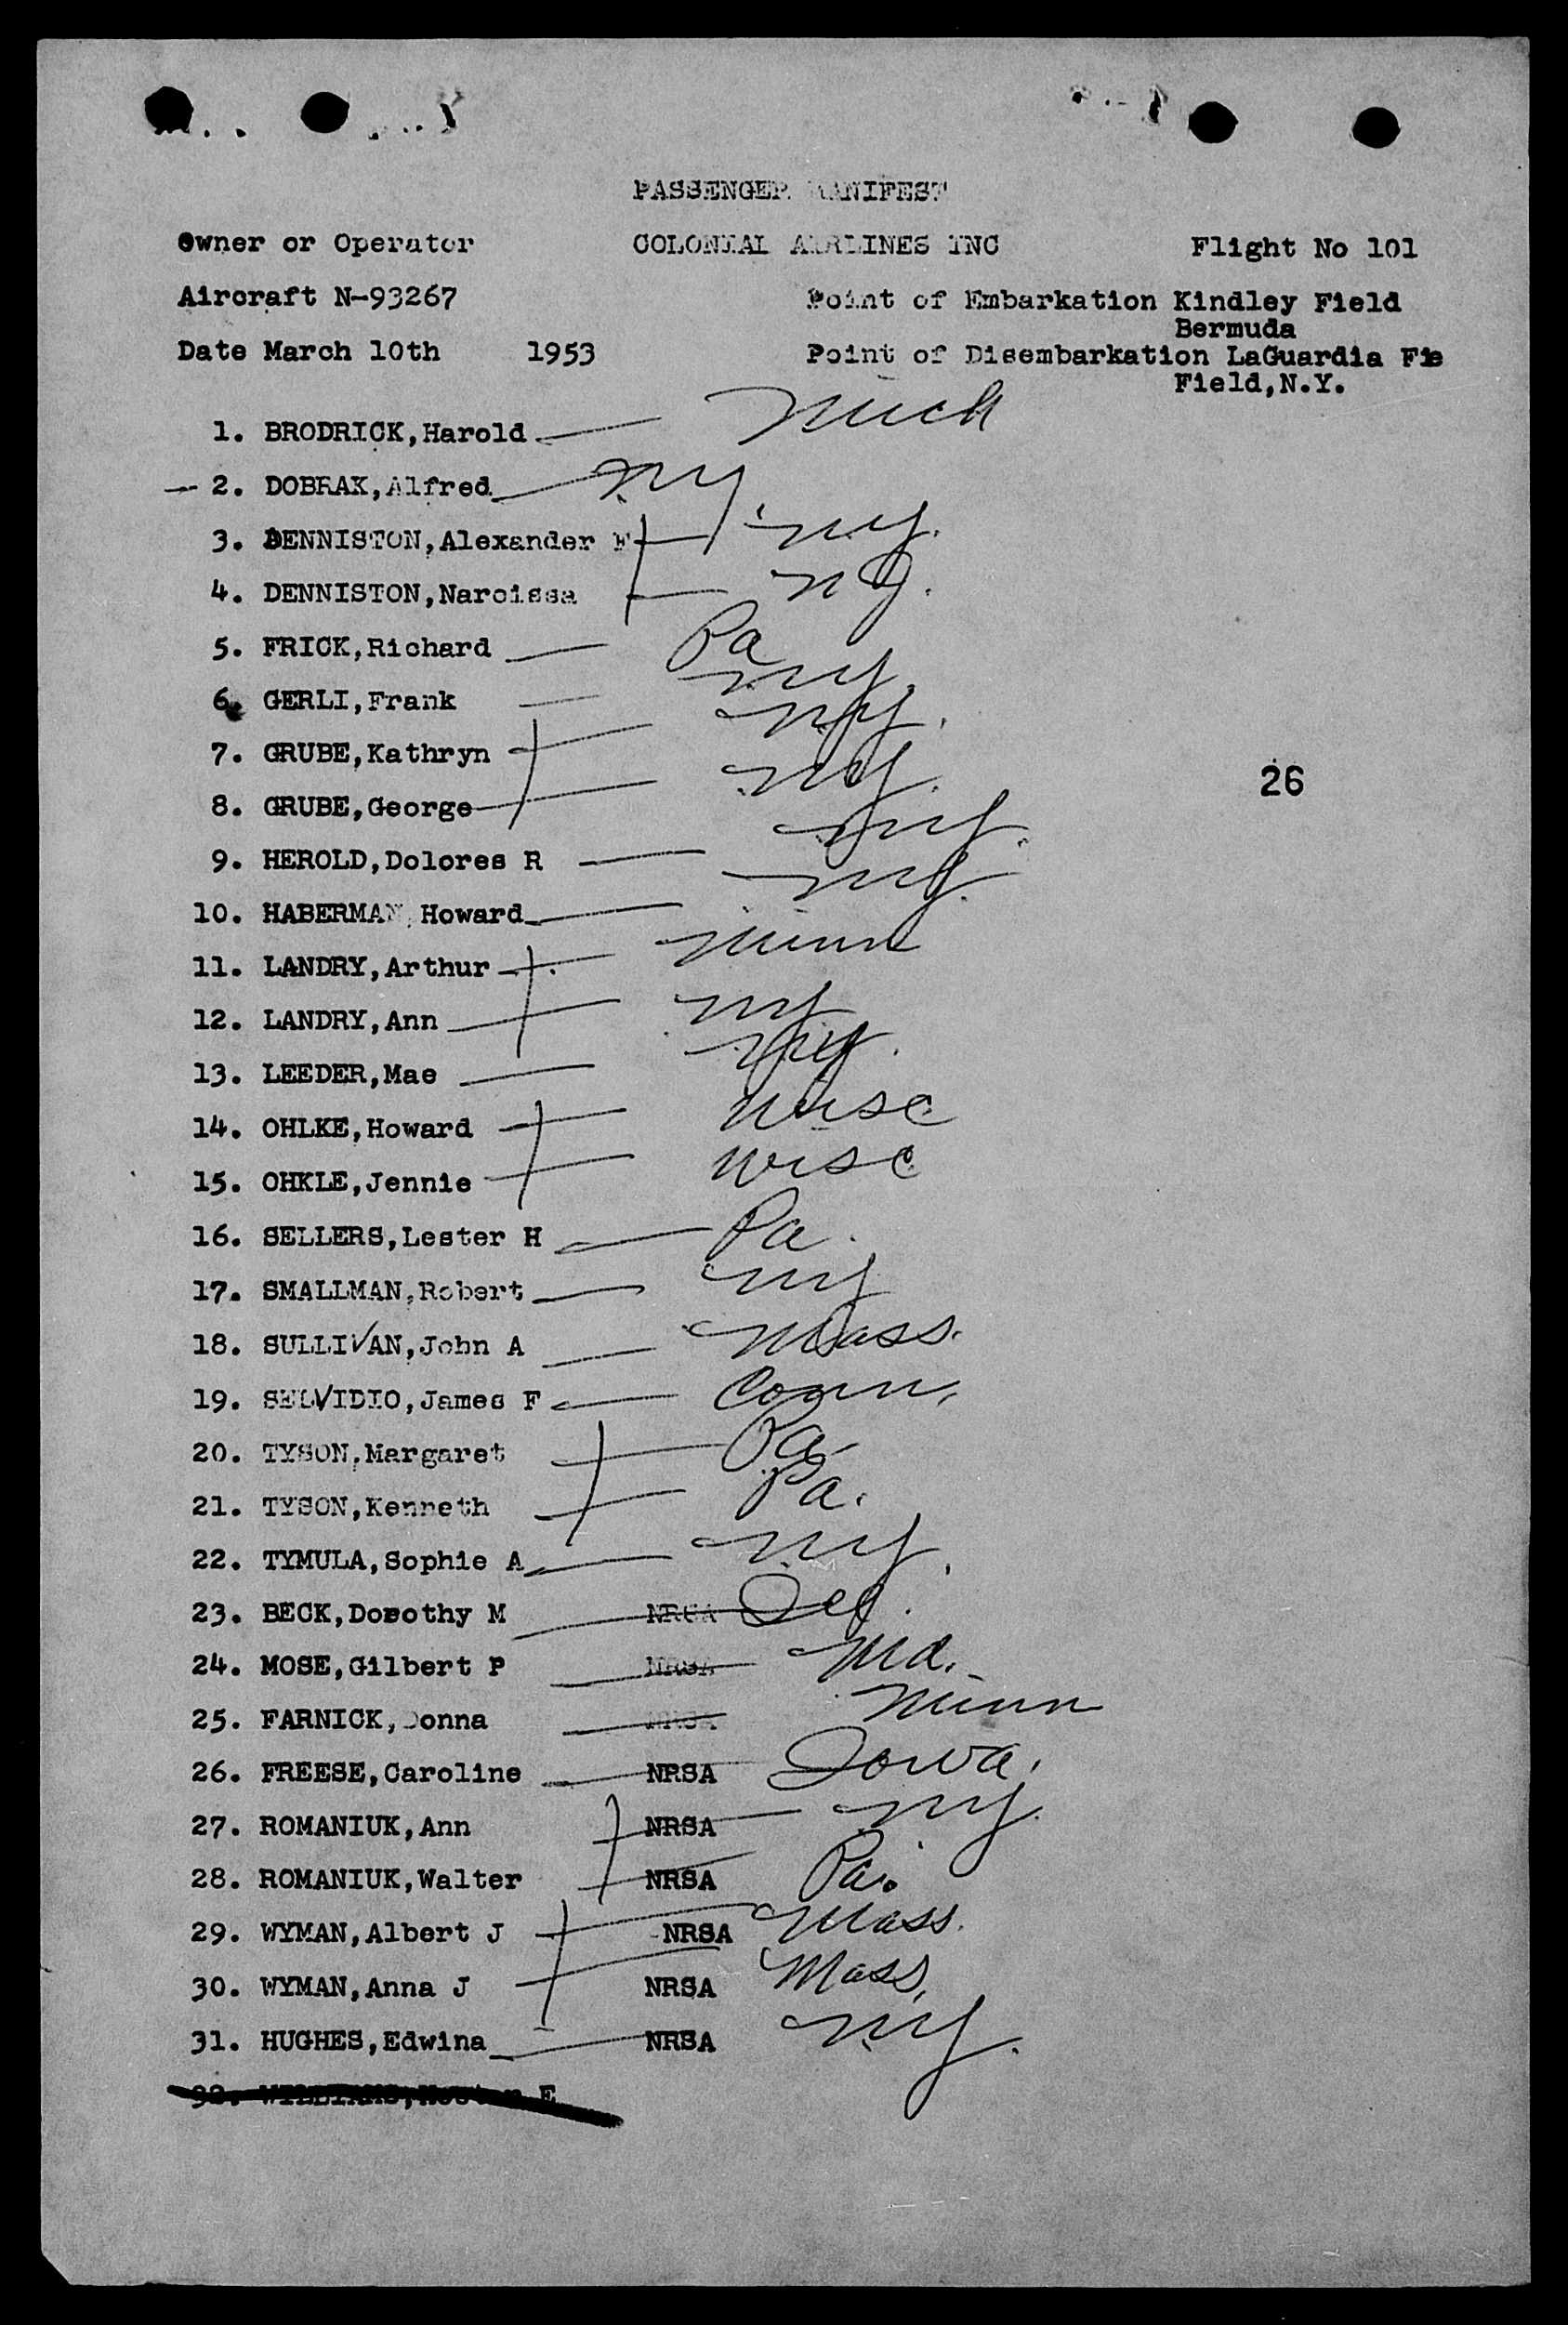 PASSENGER MANIFEST
Owner or Operator COLONIAL AIRLINES INC Flight No 101
Aircraft N-93267 Point of Embarkation Kindley Field
Bermuda
Date March 10th 1953 Point of Disembarkation LaGuardia Fie
Field,N.Y.
1. BRODRICK,Harold Mich
2. DOBRAK,Alfred NY.
3. DENNISTON,Alexander F NY.
4. DENNISTON,Narcissa NY.
5. FRICK,Richard Pa
6. GERLI,Frank NY.
7. GRUBE,Kathryn NY.
26
8. GRUBE,George NY.
9. HEROLD,Dolores R NY.
10. HABERMAN,Howard NY.
11. LANDRY,Arthur Minn
12. LANDRY,Ann NY
13. LEEDER,Mae NY.
14. OHLKE,Howard Wisc
15. OHKLE,Jennie Wisc
16. SELLERS,Lester H Pa.
17. SMALLMAN,Robert NY
18. SULLIVAN,John A Mass.
19. SELVIDIO,James F Conn.
20. TYSON,Margaret Pa
21. TYSON,Kenneth Pa.
22. TYMULA,Sophie A NY.
23. BECK,Dorothy M NRSA Del.
24. MOSE,Gilbert P NRSA Md.
25. FARNICK,Donna NRSA Minn
26. FREESE,Caroline NRSA Iowa.
27. ROMANIUK,Ann NRSA NY.
28. ROMANIUK,Walter NRSA Pa.
29. WYMAN,Albert J NRSA Mass.
30. WYMAN,Anna J NRSA Mass.
31. HUGHES,Edwina NRSA NY.
E